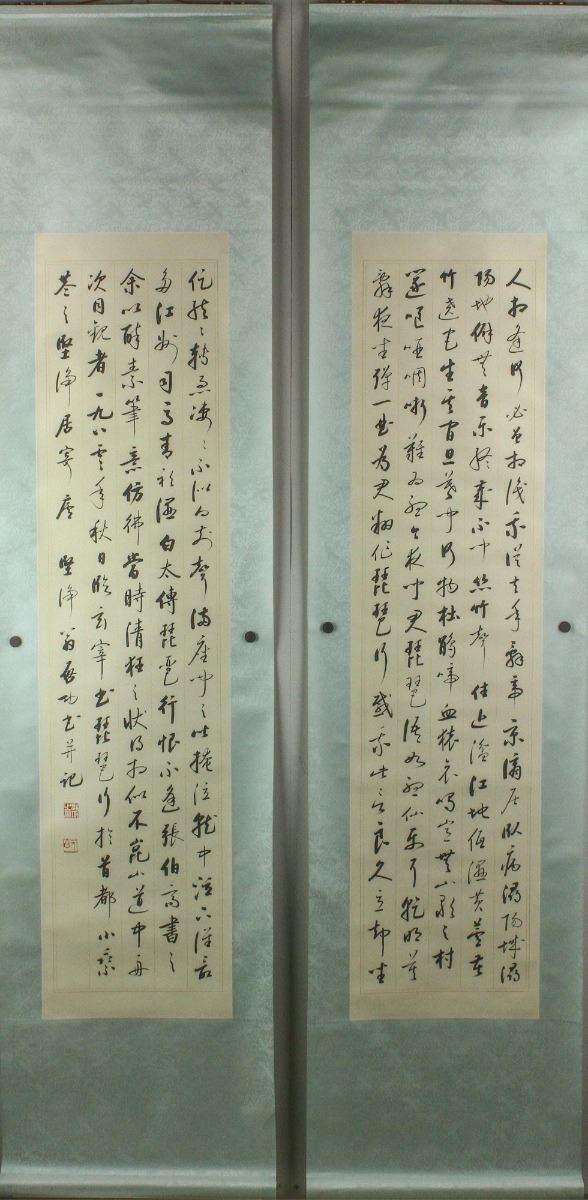 人相逢何必曾相識我從去年辭帝京謫居臥病潯陽城潯
陽地僻無音樂終歲不聞絲竹聲住近湓江地低濕黃蘆苦
竹繞宅生其間旦暮聞何物杜鵑啼血猿哀鳴豈無山歌與村
笛嘔啞啁哳難為聽今夜聞君琵琶語如聽仙樂耳暫明莫
辭更坐彈一曲為君翻作琵琶行感我此言良久立却坐
促絃絃轉急淒淒不似向前聲滿座聞之皆掩泣就中泣下誰最
多江州司馬青衫濕白太傅琵琶行恨不逢張伯高書之
余以醉素筆意仿彿當時清狂之狀得相似不崑山道中舟
次同觀者一九八零年秋日臨玄宰書琵琶行於首都小乘
巷之堅淨居寄廬 堅淨翁啟功書并記